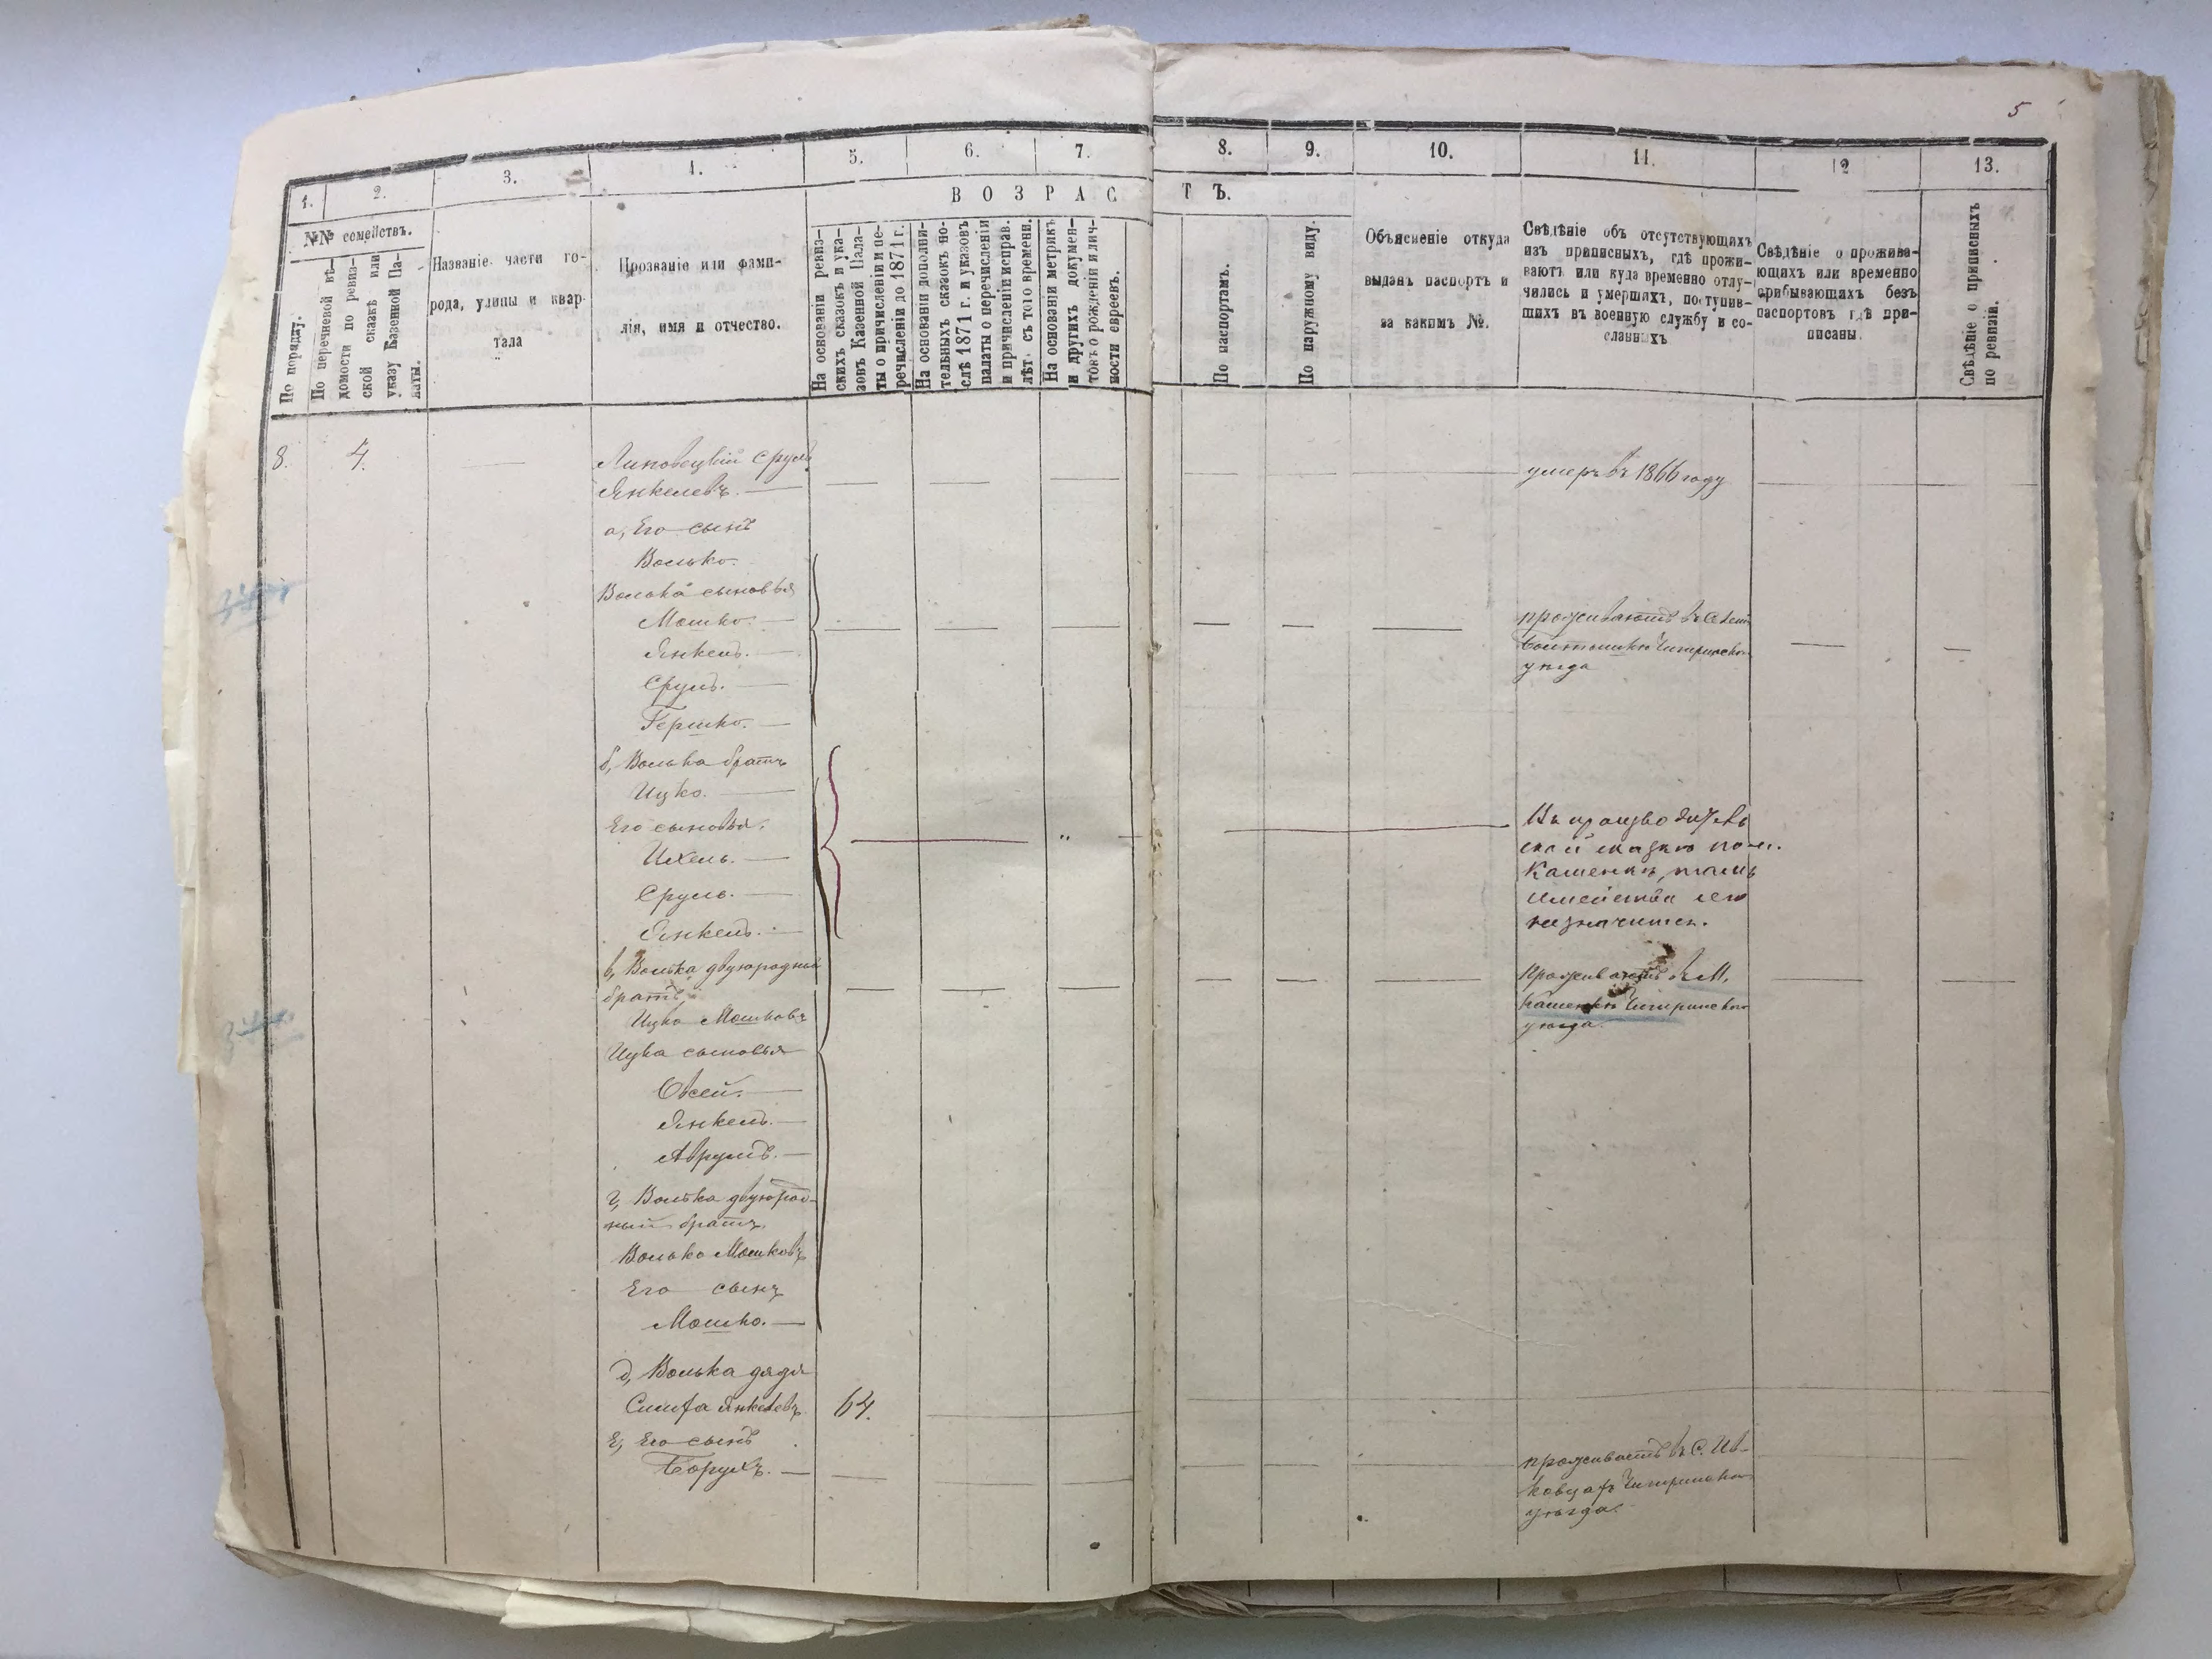 5
1.
2.
3.
4.
5.
6.
7.
8.
9.
10.
11.
12
13.
ВОЗРАСТЪ.
№№ семействъ.
По порядку.
По перечневой вѣ-
домости по ревиз-
ской сказкѣ или
указу Казенной Па-
латы.
Названіе части го-
рода, улицы и квар-
тала
Прозваніе или фами-
лія, имя и отчество.
На основаніи ревиз-
скихъ сказокъ и ука-
зовъ Казенной Пала-
ты о причисленіи и пе-
речисленіи до 1871 г.
На основаніи дополни-
тельныхъ сказокъ по-
слѣ 1871 г. и указовъ
палаты о перечисленіи
и причисленіи исправ.
лѣт. съ того времени.
На основаніи метрикъ
и другихъ докумен-
товъ о рожденіи и лич-
ности евреевъ.
По паспортамъ.
По наружному виду.
Объясненіе откуда
выданъ паспортъ и
за какимъ №.
Свѣдѣніе объ отсутствующихъ
изъ приписныхъ, гдѣ прожи-
ваютъ или куда временно отлу-
чились и умершихъ, поступив-
шихъ въ военную службу и со-
сланныхъ
Свѣдѣніе о прожива-
ющихъ или временно
прибывающихъ безъ
паспортовъ гдѣ при-
писаны.
Свѣдѣніе о приписныхъ
по ревизіи.
8.
4.
Липовецкій Сруль
Янкелевъ.
умеръ въ 1866 году
а, Его сынъ
Волько.
Волька сыновья
Мошко.
Янкель.
Сруль.
Гершко.
проживаютъ въ
Чигиринскаго
уѣзда
б, Волька братъ
Ицко.
Его сыновья.
Ихель.
Сруль.
Янкель.
ской сказкѣ по м.
Каменкѣ, тамъ
семейства его
незначится.
в, Волька двуюродный
братъ,
Ицко Мошковъ
проживаютъ въ М.
Каменкѣ Чигиринскаго
уѣзда.
Ицка сыновья
Овсей.
Янкель.
Аврумъ.
г, Волька двуюрод-
ный братъ.
Волько Мошковъ
Его сынъ
Мошко.
д, Волька дядя
Симха Янкелевъ.
64.
е, Его сынъ
Борухъ.
проживаетъ въ С. Ив-
ковцахъ Чигиринскаго
уѣзда.